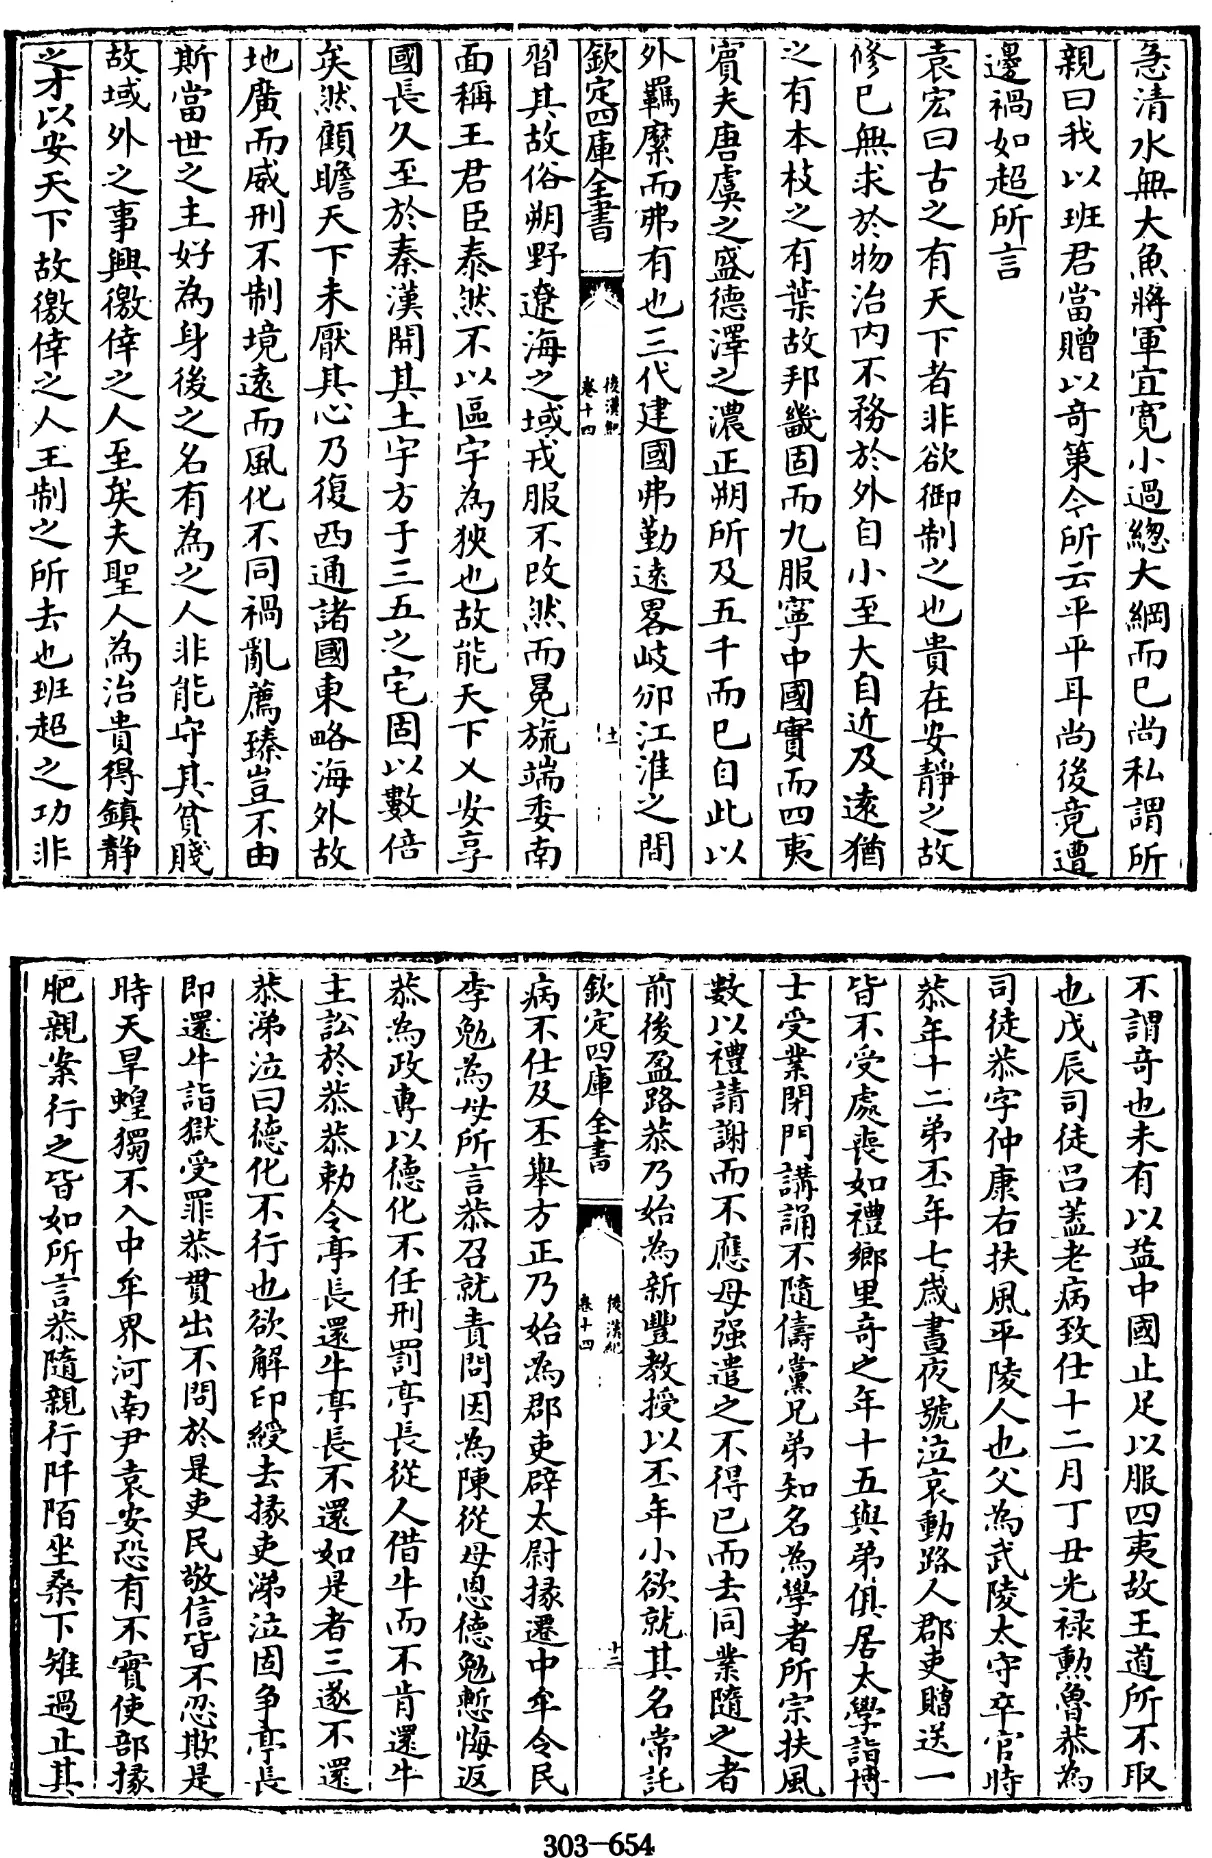 急清水無大魚將軍宜寛小過總大綱而巳尚私謂所
親曰我以班君當贈以奇策今所云平平耳尚後竟遭
邊禍如超所言
袁宏曰古之有天下者非欲御制之也貴在安靜之故
修巳無求於物治内不務於外自小至大自近及逺猶
之有本枝之有葉故邦畿固而九服寧中國實而四夷
賓夫唐虞之盛德澤之濃正朔所及五千而巳自此以
外羈縻而弗有也三代建國弗勤逺畧岐邠江淮之間
欽定四庫全書
後漢紀
卷十四
十一
習其故俗朔野遼海之域戎服不改然而冕旒端委南
面稱王君臣泰然不以區宇為狹也故能天下乂安享
國長久至於秦漢開其土宇方于三五之宅固以數倍
矣然顧瞻天下未厭其心乃復西通諸國東略海外故
地廣而威刑不制境逺而風化不同禍亂薦臻豈不由
斯當世之主好為身後之名有為之人非能守其貧賤
故域外之事興徼倖之人至矣夫聖人為治貴得鎮靜
之才以安天下故徼倖之人王制之所去也班超之功非
不謂奇也未有以益中國止足以服四夷故王道所不取
也戊辰司徒吕葢老病致仕十二月丁丑光禄勲魯恭為
司徒恭字仲康右扶風平陵人也父為武陵太守卒官時
恭年十二弟丕年七歲晝夜號泣哀動路人郡吏贈送一
皆不受處喪如禮鄉里奇之年十五與弟俱居太學詣博
士受業閉門講誦不隨儔黨兄弟知名為學者所宗扶風
數以禮請謝而不應母强遣之不得已而去同業隨之者
前後盈路恭乃始為新豐教授以丕年小欲就其名常託
欽定四庫全書
後漢紀
卷十四
十二
病不仕及丕舉方正乃始為郡吏辟太尉掾遷中牟令民
李勉為母所言恭召就責問因為陳從母恩德勉慙悔返
恭為政専以德化不任刑罰亭長從人借牛而不肯還牛
主訟於恭恭勅令亭長還牛亭長不還如是者三遂不還
恭涕泣曰德化不行也欲解印綬去掾吏涕泣固争亭長
即還牛詣獄受罪恭貫出不問於是吏民敬信皆不忍欺是
時天旱蝗獨不入中牟界河南尹袁安恐有不實使部掾
肥親案行之皆如所言恭隨親行阡陌坐桑下雉過止其
303-654